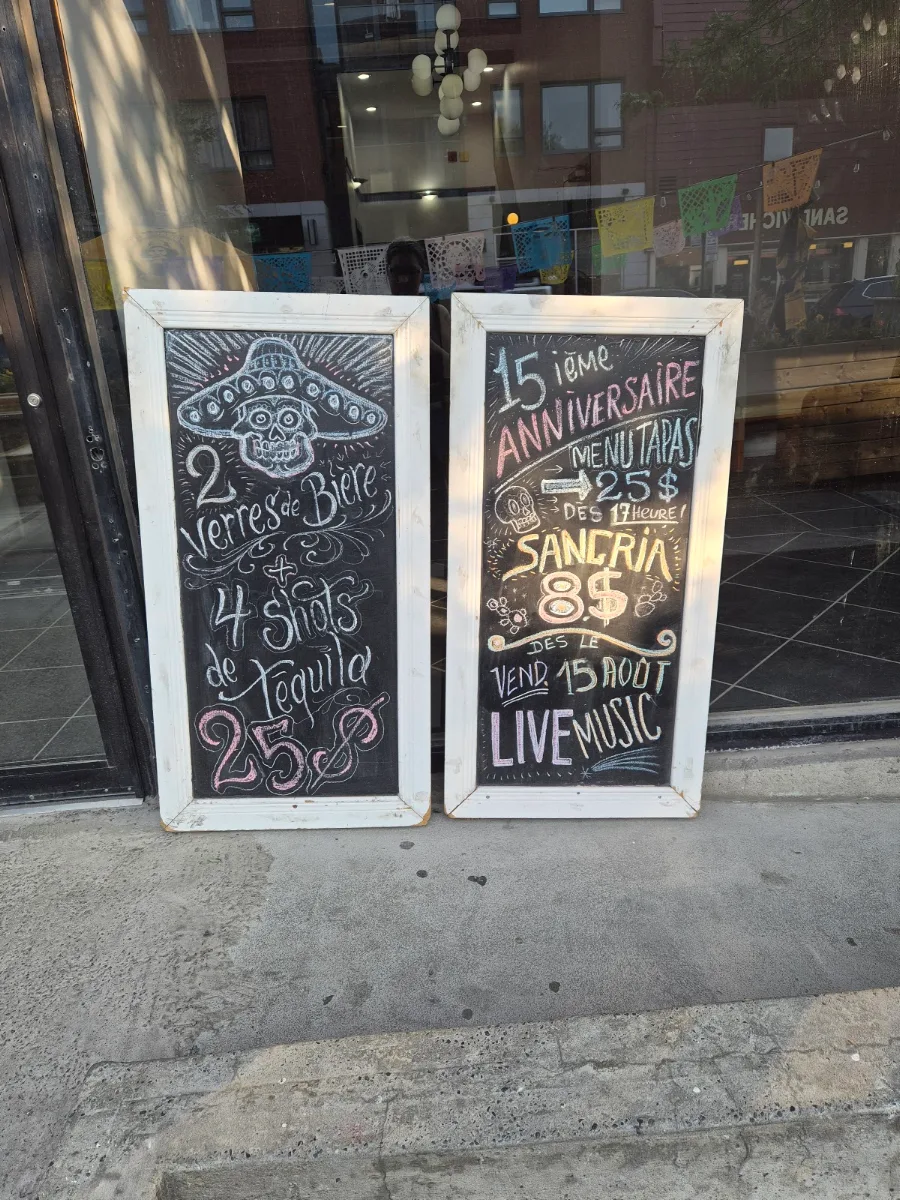 2
verres de Bière
+
4 shots
de tequila
25$
15 ième
ANNIVERSAIRE
MENU TAPAS
25$
DÈS 17 HEURE!
SANGRIA
8$
DES LE
VEND. 15 AOÛT
LIVE MUSIC